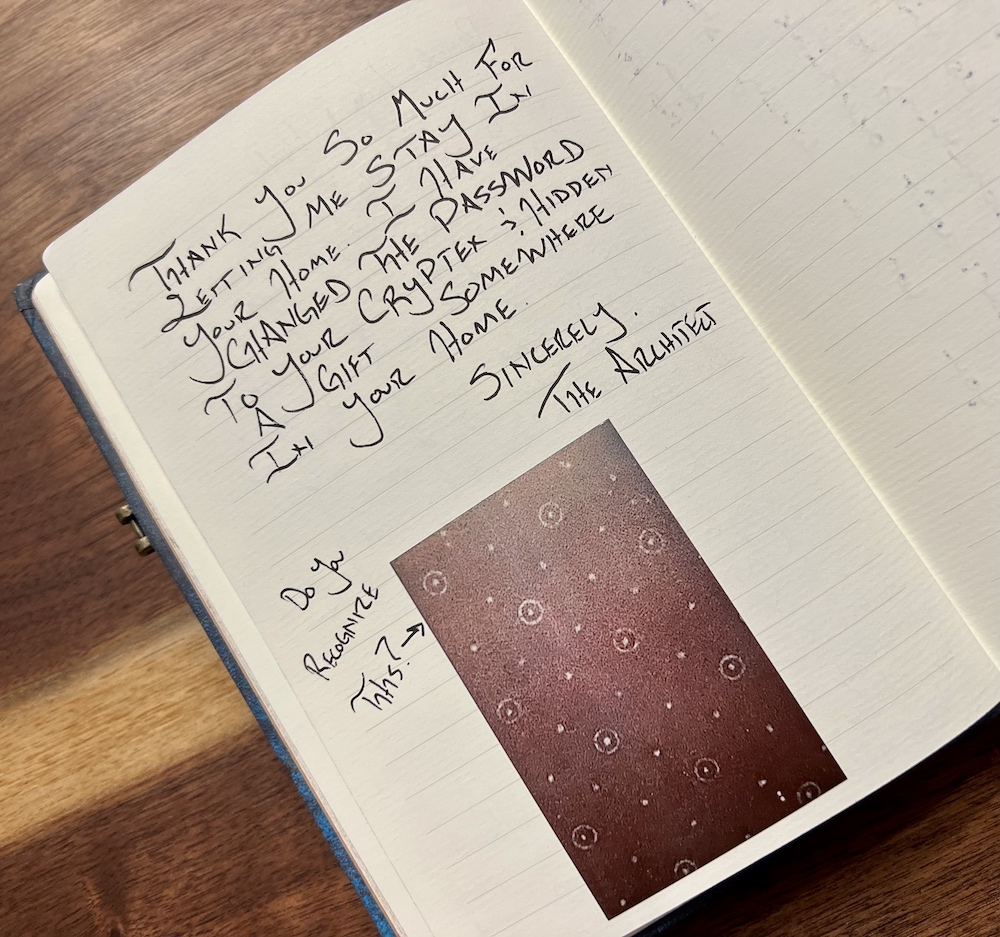 THANK YOU SO MUCH FOR
LETTING ME STAY IN
YOUR HOME. I HAVE
CHANGED THE PASSWORD
TO YOUR CRYPTEX & HIDDEN
A GIFT SOMEWHERE
IN YOUR HOME.
SINCERELY.
THE ARCHITECT
DO YOU
RECOGNIZE
THIS? →